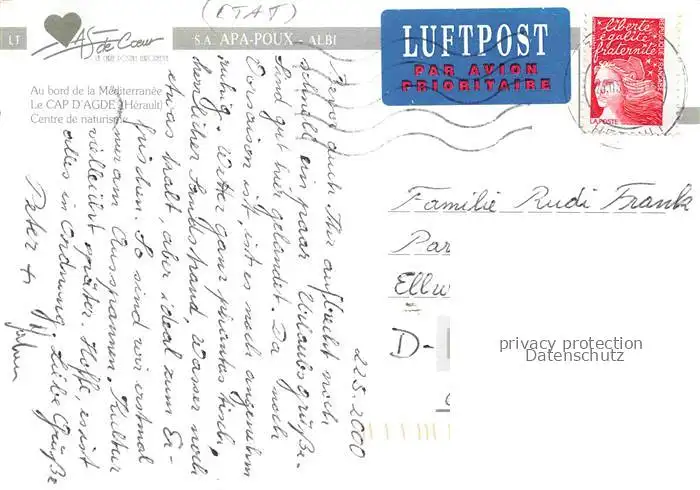 (ETAT)
LT
AS de Cœur
LA CARTE POSTALE
S.A. APA-POUX - ALBI
Au bord de la Méditerranée
Le CAP D'AGDE (Hérault)
Centre de naturisme
LUFTPOST
PAR AVION
PRIORITAIRE
liberté
égalité
fraternité
LA POSTE
22.5.2000
Bevor auch Ihr aufbrecht noch
schnell ein paar Urlaubsgrüße.
Sind gut hier gelandet. Da noch
Vorsaison ist, ist es noch angenehm
ruhig. Wetter ganz
herrlicher Sandstrand, Wasser noch
etwas kalt, aber ideal zum Er-
frischen. So sind wir erstmal
am Ausspannen. Kultur
vielleicht später. Hoffe, es ist
alles in Ordnung. Liebe Grüße
Peter +
Familie Rudi Frank
Par
Ellw
D-
privacy protection
Datenschutz